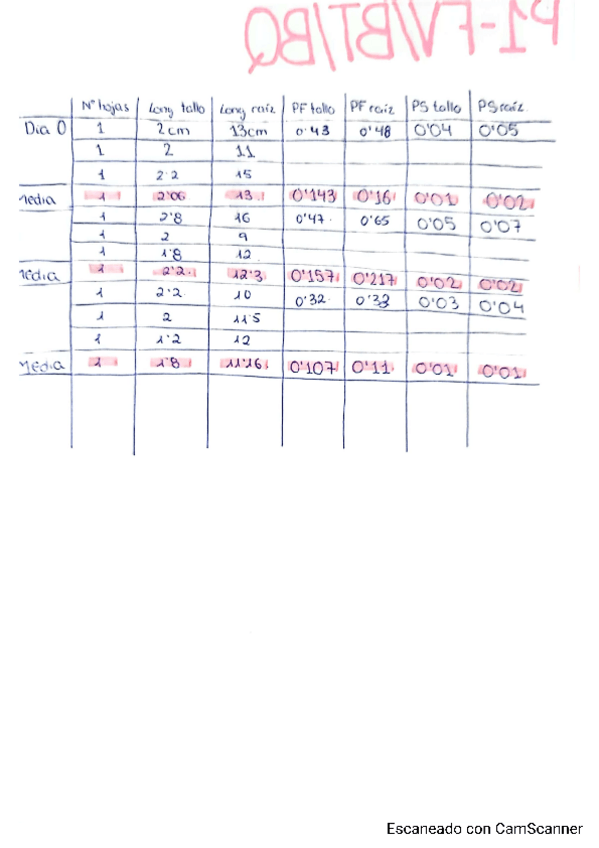 P1-FV/BT/BQ
Nº hojas Long tallo Long raíz PF tallo PF raíz PS tallo PS raíz
Dia 0 1 2cm 13cm 0'43 0'48 0'04 0'05
1 2 11
1 2'2 15
Media 1 2'06 13 0'143 0'16 0'01 0'02
1 2'8 16 0'47 0'65 0'05 0'07
1 2 9
1 1'8 12
Media 1 2'2 12'3 0'157 0'217 0'02 0'02
1 2'2 10 0'32 0'33 0'03 0'04
1 2 11'5
1 1'2 12
Media 1 1'8 11'16 0'107 0'11 0'01 0'01
Escaneado con CamScanner